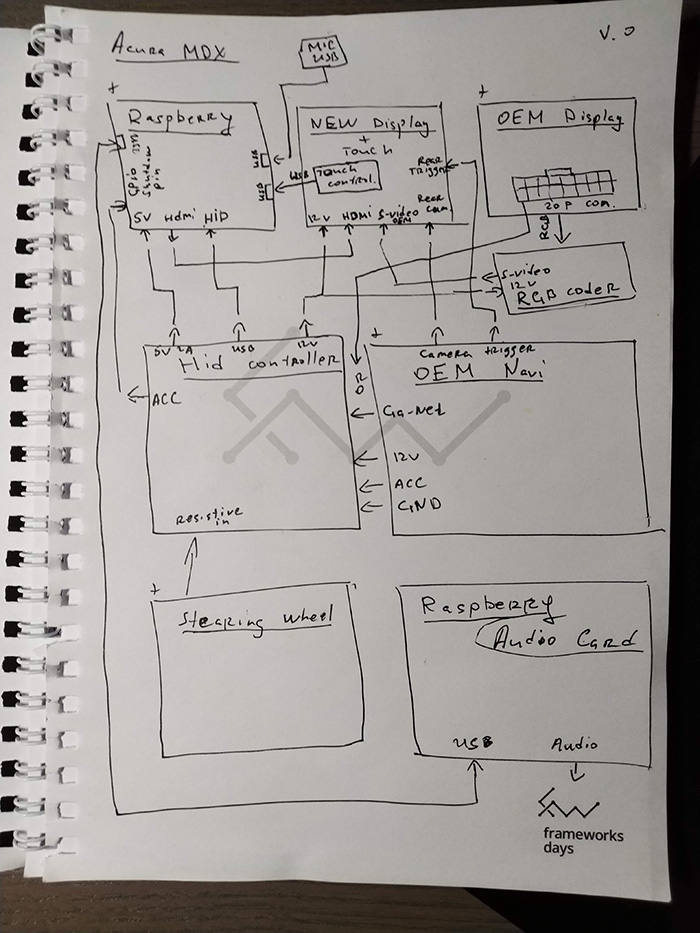 Acura MDX
V.0
MIC
USB
+
Raspberry
USB
GPIO
Shutdown
pin
USB
USB
5V Hdmi HiD
NEW Display
+
Touch
USB
Touch
control.
Rear
TRiggER
12V HDMi S-video
OEM
Rear
Cam.
+
OEM Display
20 P com.
RGB
S-video
12V
RGB coder
5V 2A USB 12V
Hid controller
ACC
Resistive
in
+
Camera trigger
OEM Navi
Ga-Net
12V
ACC
GND
+
Stearing wheel
Raspberry
Audio Card
USB Audio
frameworks
days